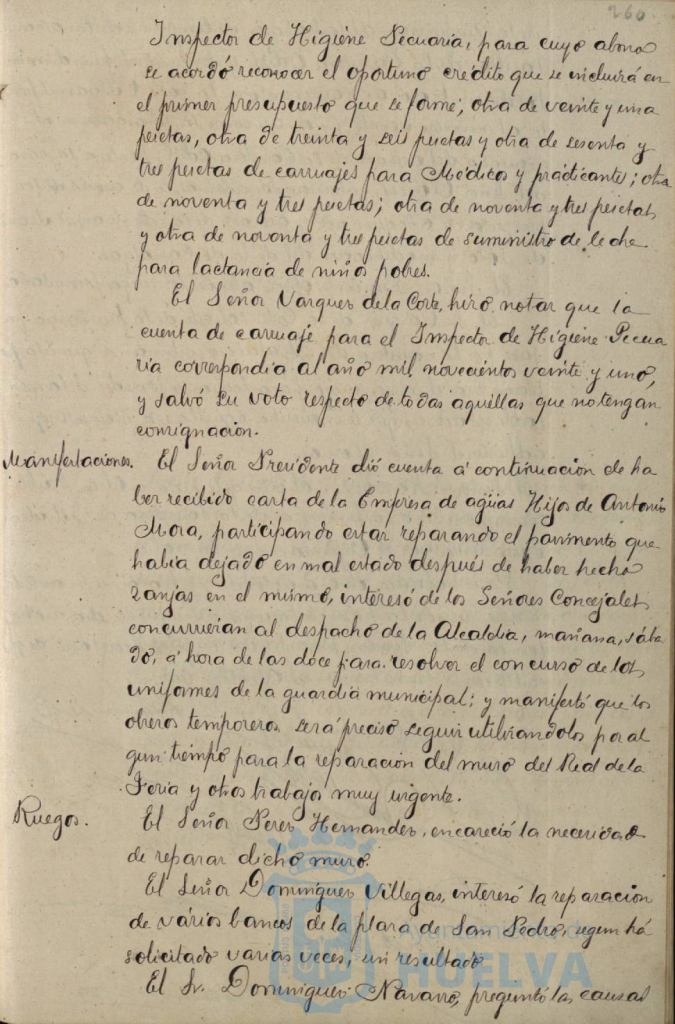 260.
Inspector de Higiene Pecuaria, para cuyo abono
se acordó reconocer el oportuno crédito que se incluirá en
el primer presupuesto que se forme; otra de veinte y una
pesetas, otra de treinta y seis pesetas y otra de sesenta y
tres pesetas de carruajes para Médicos y practicantes; otra
de noventa y tres pesetas; otra de noventa y tres pesetas,
y otra de noventa y tres pesetas de suministro de leche
para lactancia de niños pobres.
El Señor Vazquez de la Corte, hizo notar que la
cuenta de carruaje para el Inspector de Higiene Pecua
ria correspondia al año mil novecientos veinte y uno,
y salvó su voto respecto de todas aquellas que no tengan
consignación.
Manifestaciones. El Señor Presidente dió cuenta á continuación de ha
ber recibido carta de la Empresa de agüas Hijos de Antonio
Mora, participando estar reparando el pavimento que
habia dejado en mal estado después de haber hecho
zanjas en el mismo, interesó de los Señores Concejales
concurrieran al despacho de la Alcaldia, mañana, sába
do, á hora de las doce para resolver el concurso de los
uniformes de la guardia municipal; y manifestó que los
obreros temporeros será preciso seguir utilizandolos por al
gun tiempo para la reparación del muro del Real de la
Feria y otros trabajo muy urgente.
Ruegos. El Señor Perez Hernandez, encareció la necesidad
de reparar dicho muro.
El Señor Dominguez Villegas, interesó la reparación
de vários bancos de la plaza de San Pedro, segun há
solicitado varias veces, sin resultado
El Sr. Dominguez Navarro, preguntó las causas
Ayuntamiento de
HUELVA